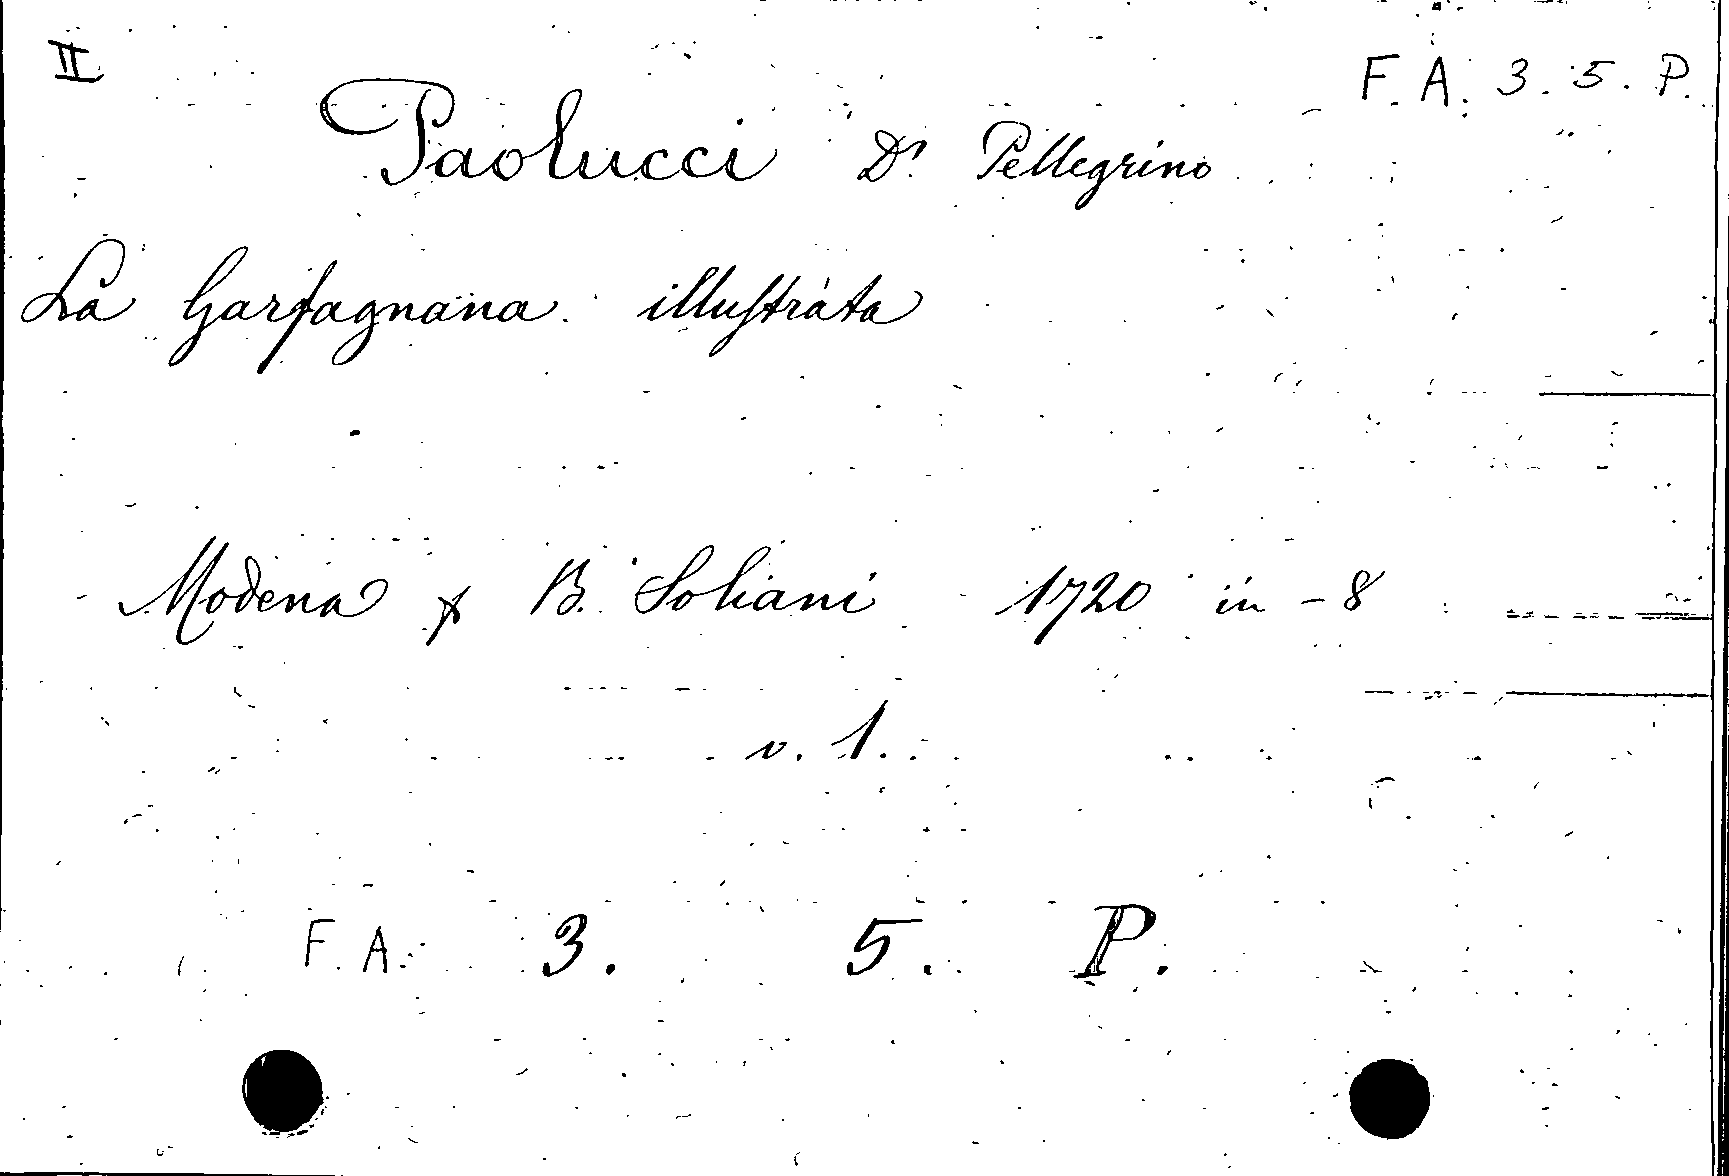 II
F. A. 3. 5. P.
Paolucci Dr. Pellegrino
La Garfagnana illustrata
Modena p B. Soliani 1720 in - 8
v. 1.
F. A. 3. 5. P.